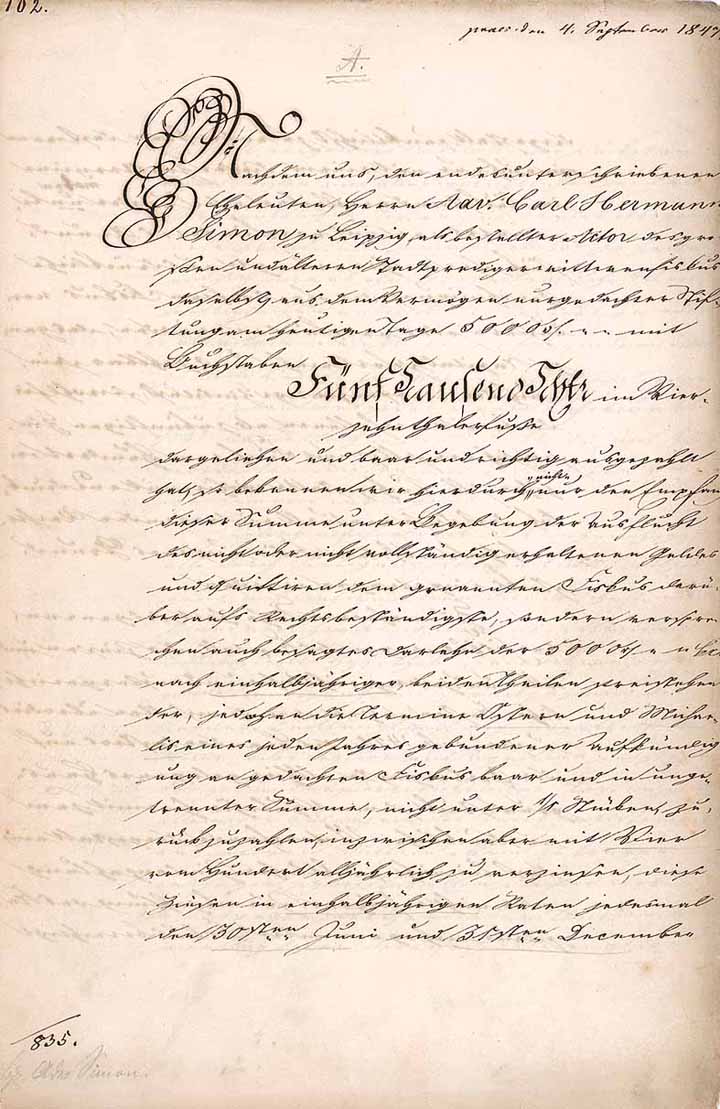 102.
praes. den 4. September 184
A.
Nachdem uns, den endesunterschriebenen
Eheleuten, Herrn Adv. Carl Hermann
Simon zu Leipzig, als bestellter Actor des gro-
ßen und älteren Stadtpredigerwittwenfiskus
daselbst, aus dem Vermögen nurgedachter Stif-
tung am heutigen Tage 5000 mit
Buchstaben
Fünf Tausend Thlr im Vier-
zehnthalerfuße
dargeliehen und baar und richtig ausgezahlt
hat, so bekennen wir hierdurch nicht nur den Empfan
dieser Summe unter Begebung der Ausflucht
des nicht oder nicht vollständig erhaltenen Geldes
und quittiren dem genannten Fiskus darü-
ber aufs Rechtsbeständigste, sondern verspre-
chen auch besagtes Darlehn der 5000
nach einhalbjähriger, beiden Theilen freistehen
der, jedoch an die Termine Ostern und Michae-
lis eines jeden Jahres gebundener Aufkündig
ung an gedachten Fiskus baar und in unge-
trennter Summe, nicht unter 1/1 Stücken, zu-
rückzuzahlen, inzwischen aber mit Vier
vom Hundert alljährlich zu verzinsen, diese
Zinsen in einhalbjährigen Raten jedesmal
den 30sten Juni und 31sten December
835.
Adv. Simon.